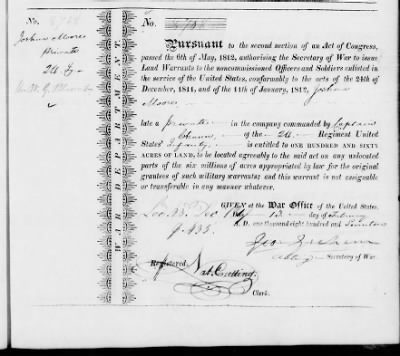 No. 8768
Joshua Moore
Private
2d
No.
Pursuant to the second section of an Act of Congress,
passed the 6th of May, 1812, authorising the Secretary of War to issue
Land Warrants to the noncommissioned Officers and Soldiers enlisted
in the service of the United States, conformably to the acts of the 24th of
December, 1811, and of the 11th of January, 1812, Joshua
Moore,
late a private in the company commanded by Captain
of the 2d Regiment United
States' Infantry, is entitled to ONE HUNDRED AND SIXTY
ACRES OF LAND, to be located agreeably to the said act on any unlocated
parts of the six millions of acres appropriated by law for the original
grantees of such military warrants; and this warrant is not assignable
or transferable in any manner whatever.
GIVEN at the War Office of the United States,
this day of
A. D. one thousand eight hundred and
Geo Graham
acting Secretary of War.
Registered,
Nat. Cutting,
Clerk.
WAR DEPARTMENT